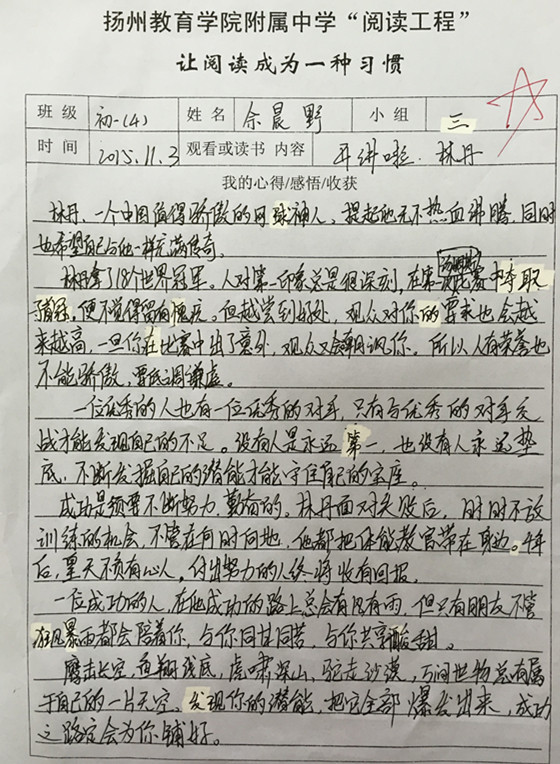 扬州教育学院附属中学“阅读工程”
让阅读成为一种习惯
班级 初一(4) 姓名 余晨野 小组 三
时间 2015.11.3 观看或读书 内容 开讲啦. 林丹
我的心得/感悟/收获
林丹，一个中国值得骄傲的网球神人。提起他无不热血沸腾，同时
也希望自己与他一样充满传奇。
林丹拿了18个世界冠军。人对第一印象总是很深刻，在第一次比赛中夺取
，便不觉得留有。但越尝到好处，观众对你的要求也会越
来越高，一旦你在比赛中出了意外，观众又会朝讽你。所以人有荣誉也
不能骄傲，要低调谦虚。
一位优秀的人也有一位优秀的对手，只有与优秀的对手交
战才能发现自己的不足。没有人是永远第一，也没有人永远垫
底，不断发掘自己的潜能才能守住自己的宝座。
成功是须要不断努力，勤奋的。林丹面对失败后，时时不放
训练的机会，不管在何时何地，他都把体能教官带在身边。4年
后，皇天不负有心人。付出努力的人终将收有回报。
一位成功的人，在他成功的路上总会有风有雨，但只有朋友不管
狂风暴雨都会陪着你，与你同甘同苦，与你共享酸甜。
鹰击长空，鱼翔浅底，虎啸深山，驼走沙漠，万间世物总有属
于自己的一片天空。发现你的潜能，把它全部爆发出来，成功
之路定会为你铺好。